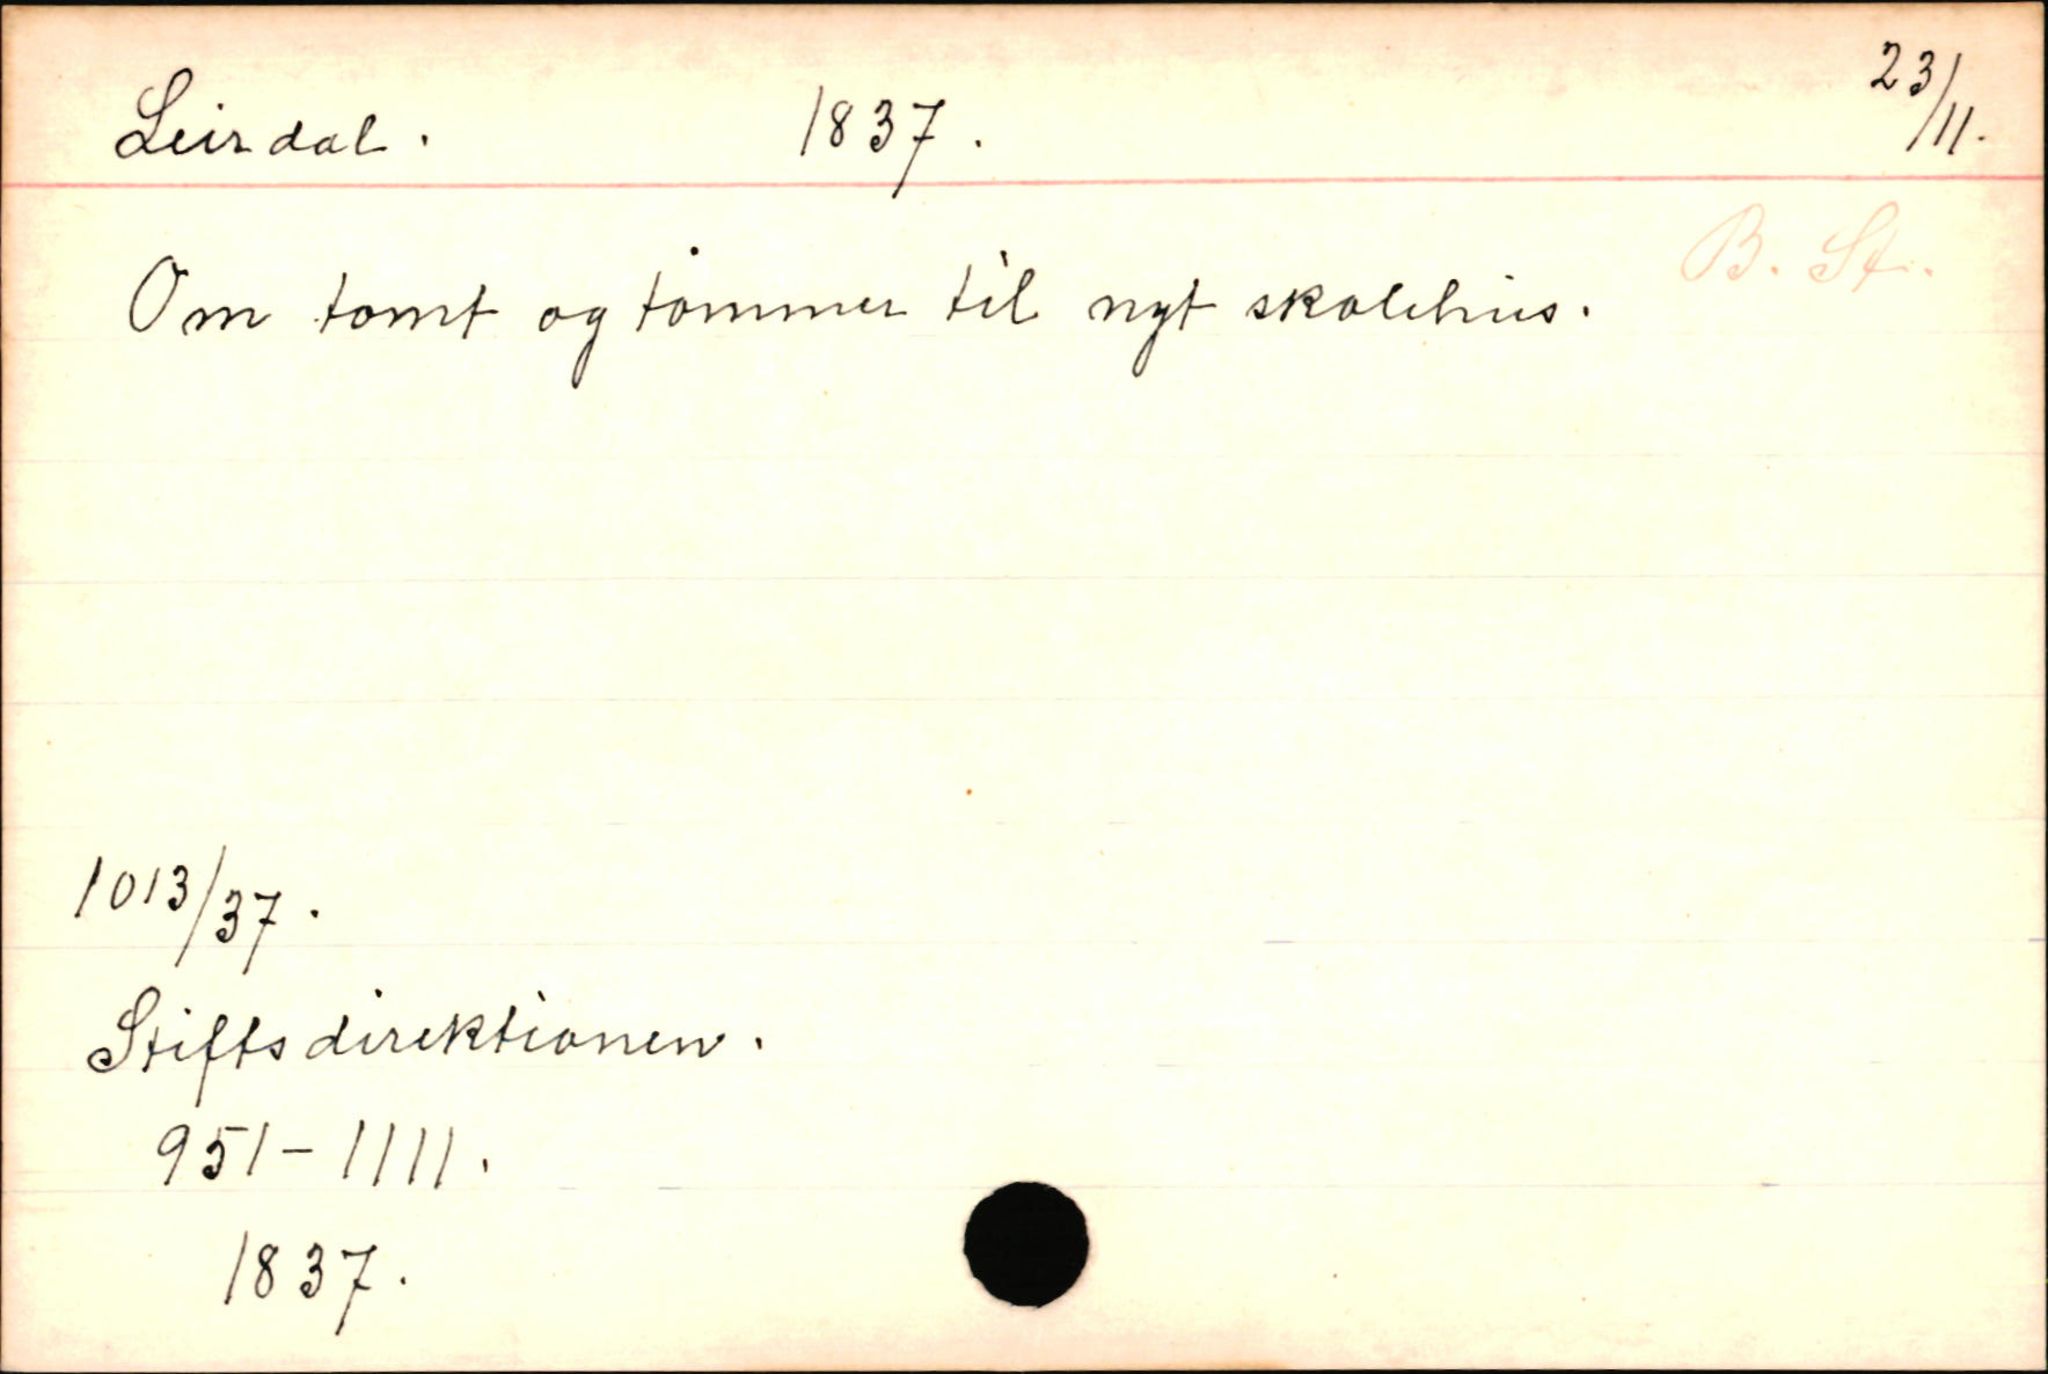 Leirdal. 1837. 23/11.
B. St.
Om tomt og tømmer til nyt skolehus.
1013/37.
Stiftsdirektionen.
951-1111.
1837.